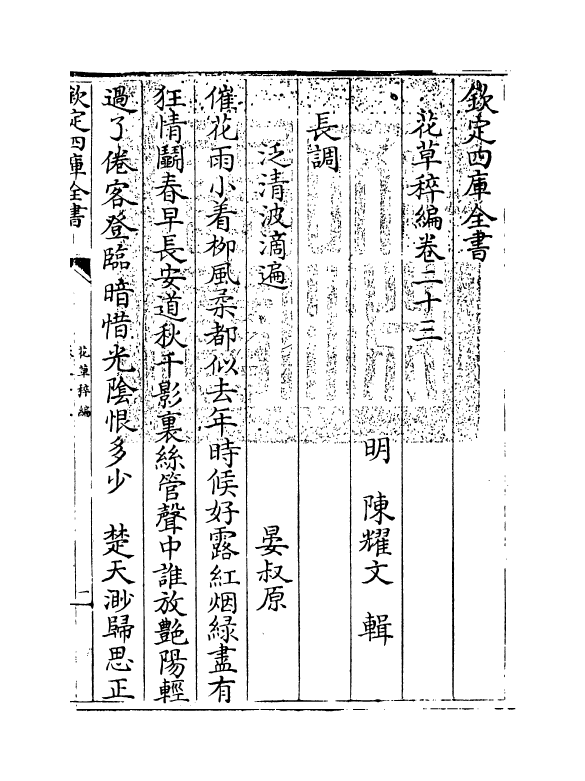 欽定四庫全書
花草稡編卷二十三
明 陳耀文 輯
長調
泛清波滴遍 晏叔原
催花雨小着柳風柔都似去年時候好露紅烟緑盡有
狂情鬭春早長安道秋千影裏絲管聲中誰放艶陽輕
過了倦客登臨暗惜光陰恨多少 楚天渺歸思正
欽定四庫全書
花草稡編